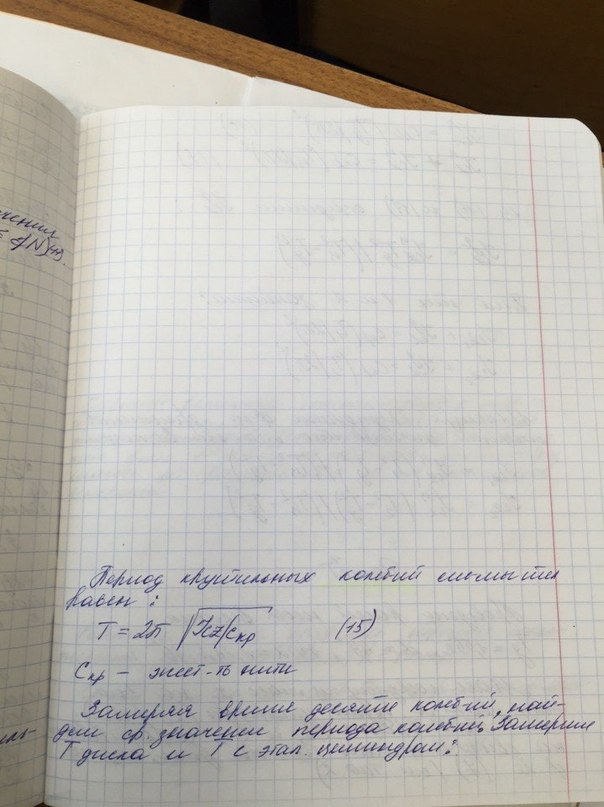 Период крутильных колебний системы тел
равен:
T = 2π √Jcz/Cкр (15)
Cкр – жест-ть нити
Замеряя время десяти колебний, най-
дем ср. значение периода колебней. Замерим
T диска и T с этал. цилиндром: